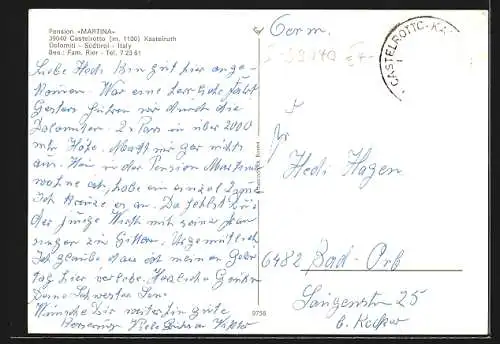 Pension «MARTINA»
39040 Castelrotto (m. 1100) Kastelruth
Dolomiti - Südtirol - Italy
Bes.: Fam. Rier - Tel. 7 23 61
Liebe Hedi Bin gut hier ange-
kommen. War eine herrliche Fahrt
Gestern fuhren wir durch die
Dolomiten. 2 Pass in über 2000
mtr Höhe. Macht mir gar nichts
aus. Hier in der Pension Martina
wohne ich, habe ein einzel
Ich kreuze es an. Da fehlst Du
der junge Wirth mit seiner Frau
singen zu Gitarre. Urgemütlich
Ich glaube das ich meinen Gebur
tag hier verlebe. Herzliche Grüße
Deine Schwester
Wünsche Dir weiterhin gute
Besserung Viele Grüße an
Germ.
CASTELROTTO-KA
An
Hedi Hagen
6482 Bad-Orb
25
b.
9756